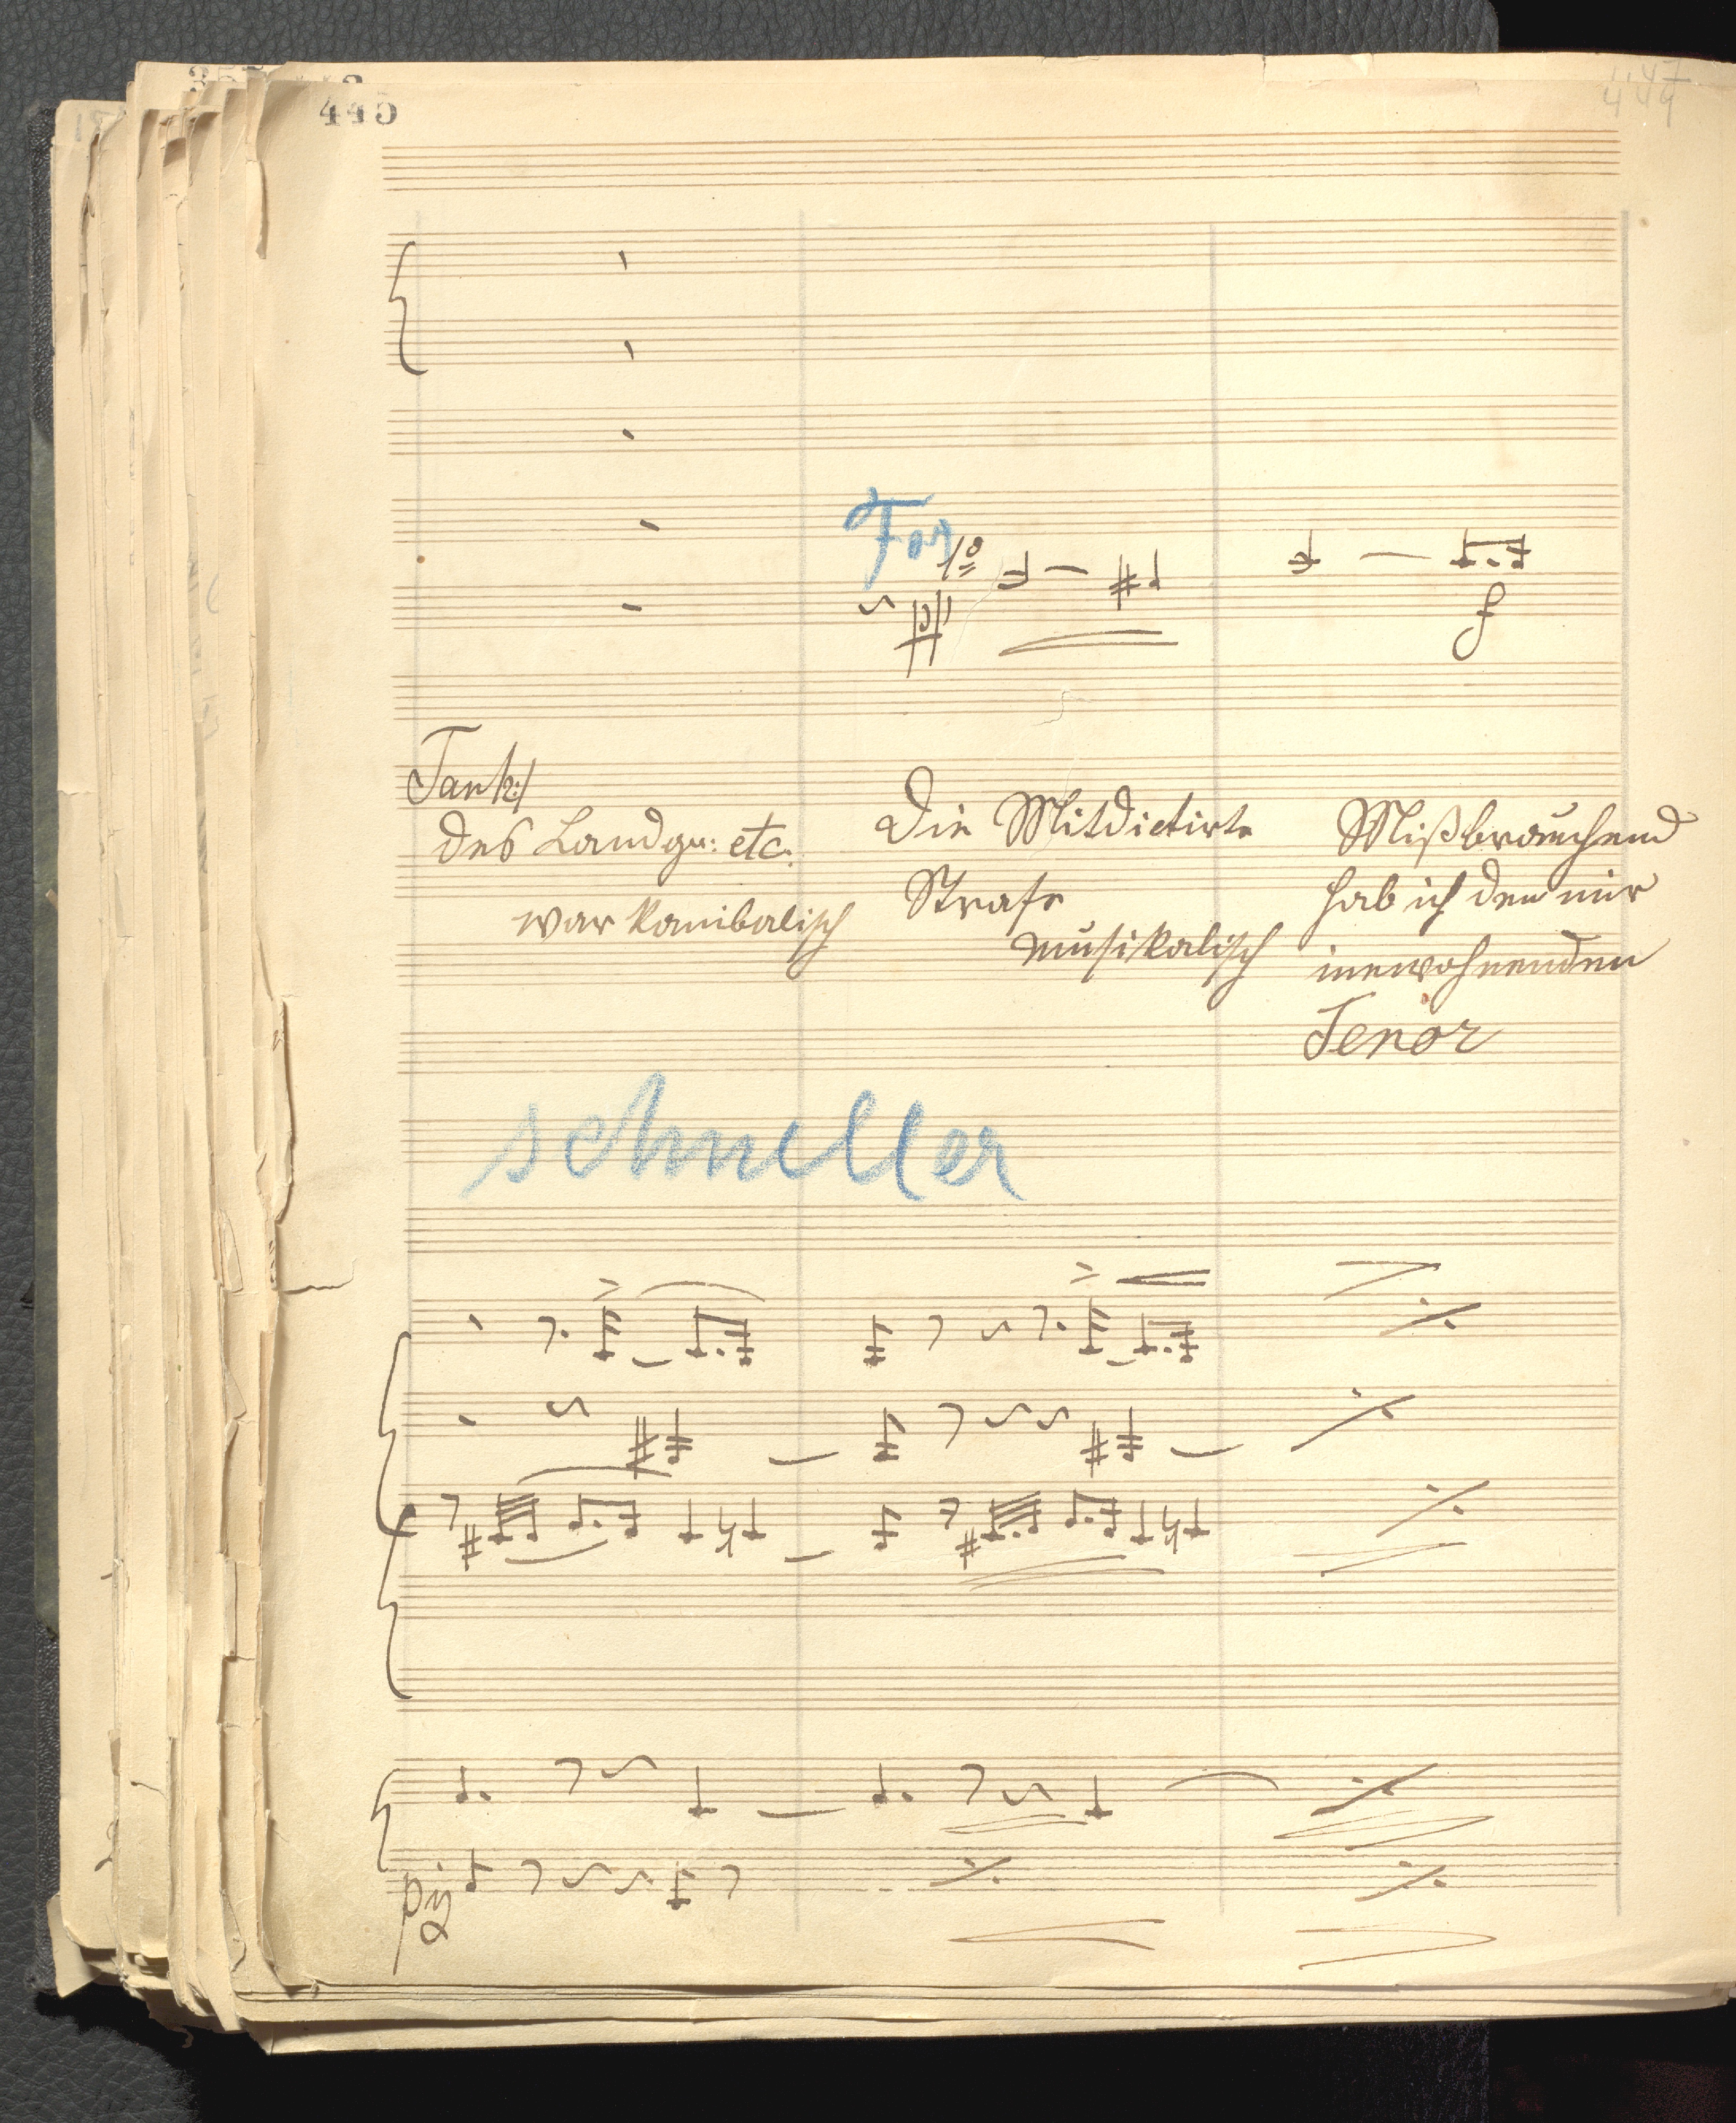 445
447
449
Fag
1º
pp
f
Tank:/
des Landgr: etc.
war kanibalisch
Die Mitdictirte
Strafe
musikalisch
Mißbrauchend
hab ich den mir
inewohnenden
Tenor
schneller